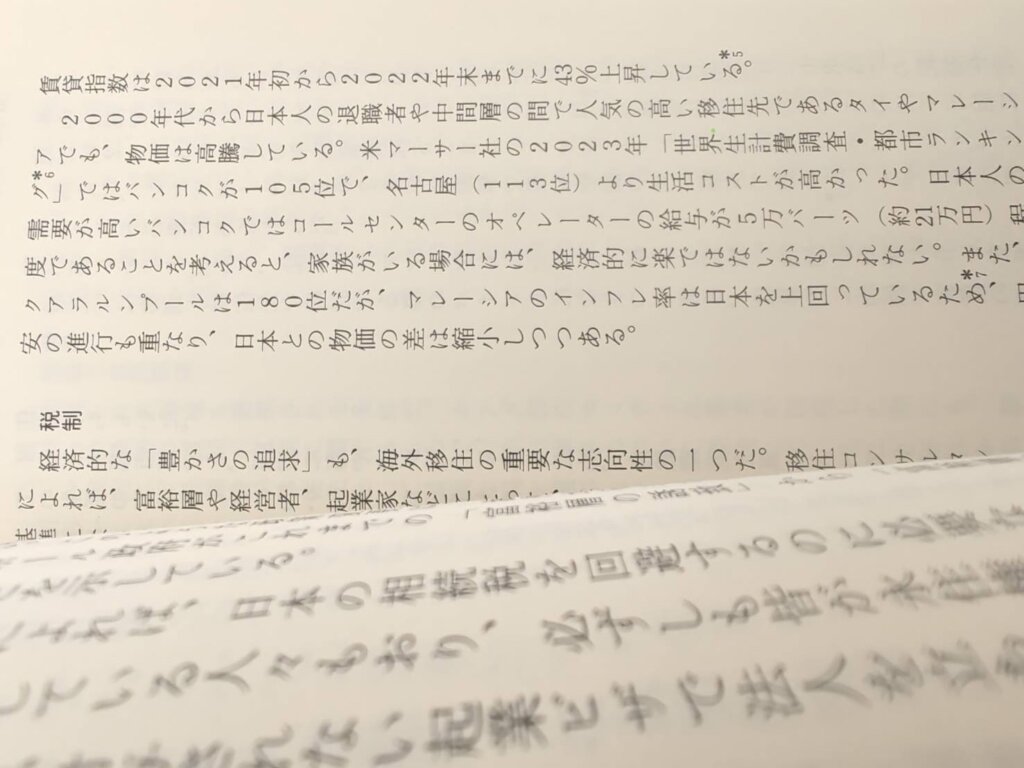 賃貸指数は2021年初から2022年末までに43%上昇している。*5
2000年代から日本人の退職者や中間層の間で人気の高い移住先であるタイやマレーシ
アでも、物価は高騰している。米マーサー社の2023年「世界生計費調査・都市ランキン
グ*6」ではバンコクが105位で、名古屋（113位）より生活コストが高かった。日本人の
需要が高いバンコクではコールセンターのオペレーターの給与が5万バーツ（約21万円）程
度であることを考えると、家族がいる場合には、経済的に楽ではないかもしれない。また、
クアラルンプールは180位だが、マレーシアのインフレ率は日本を上回っているため、*7円
安の進行も重なり、日本との物価の差は縮小しつつある。
税制
経済的な「豊かさの追求」も、海外移住の重要な志向性の一つだ。移住コンサル
によれば、富裕層や経営者、起業家など
政府がこれまでの「富裕層の
を示している。
よれば、日本の相続税を回避するのに必要な
している人々もおり、必ずしも皆が永住権
れない起業ビザで法人を